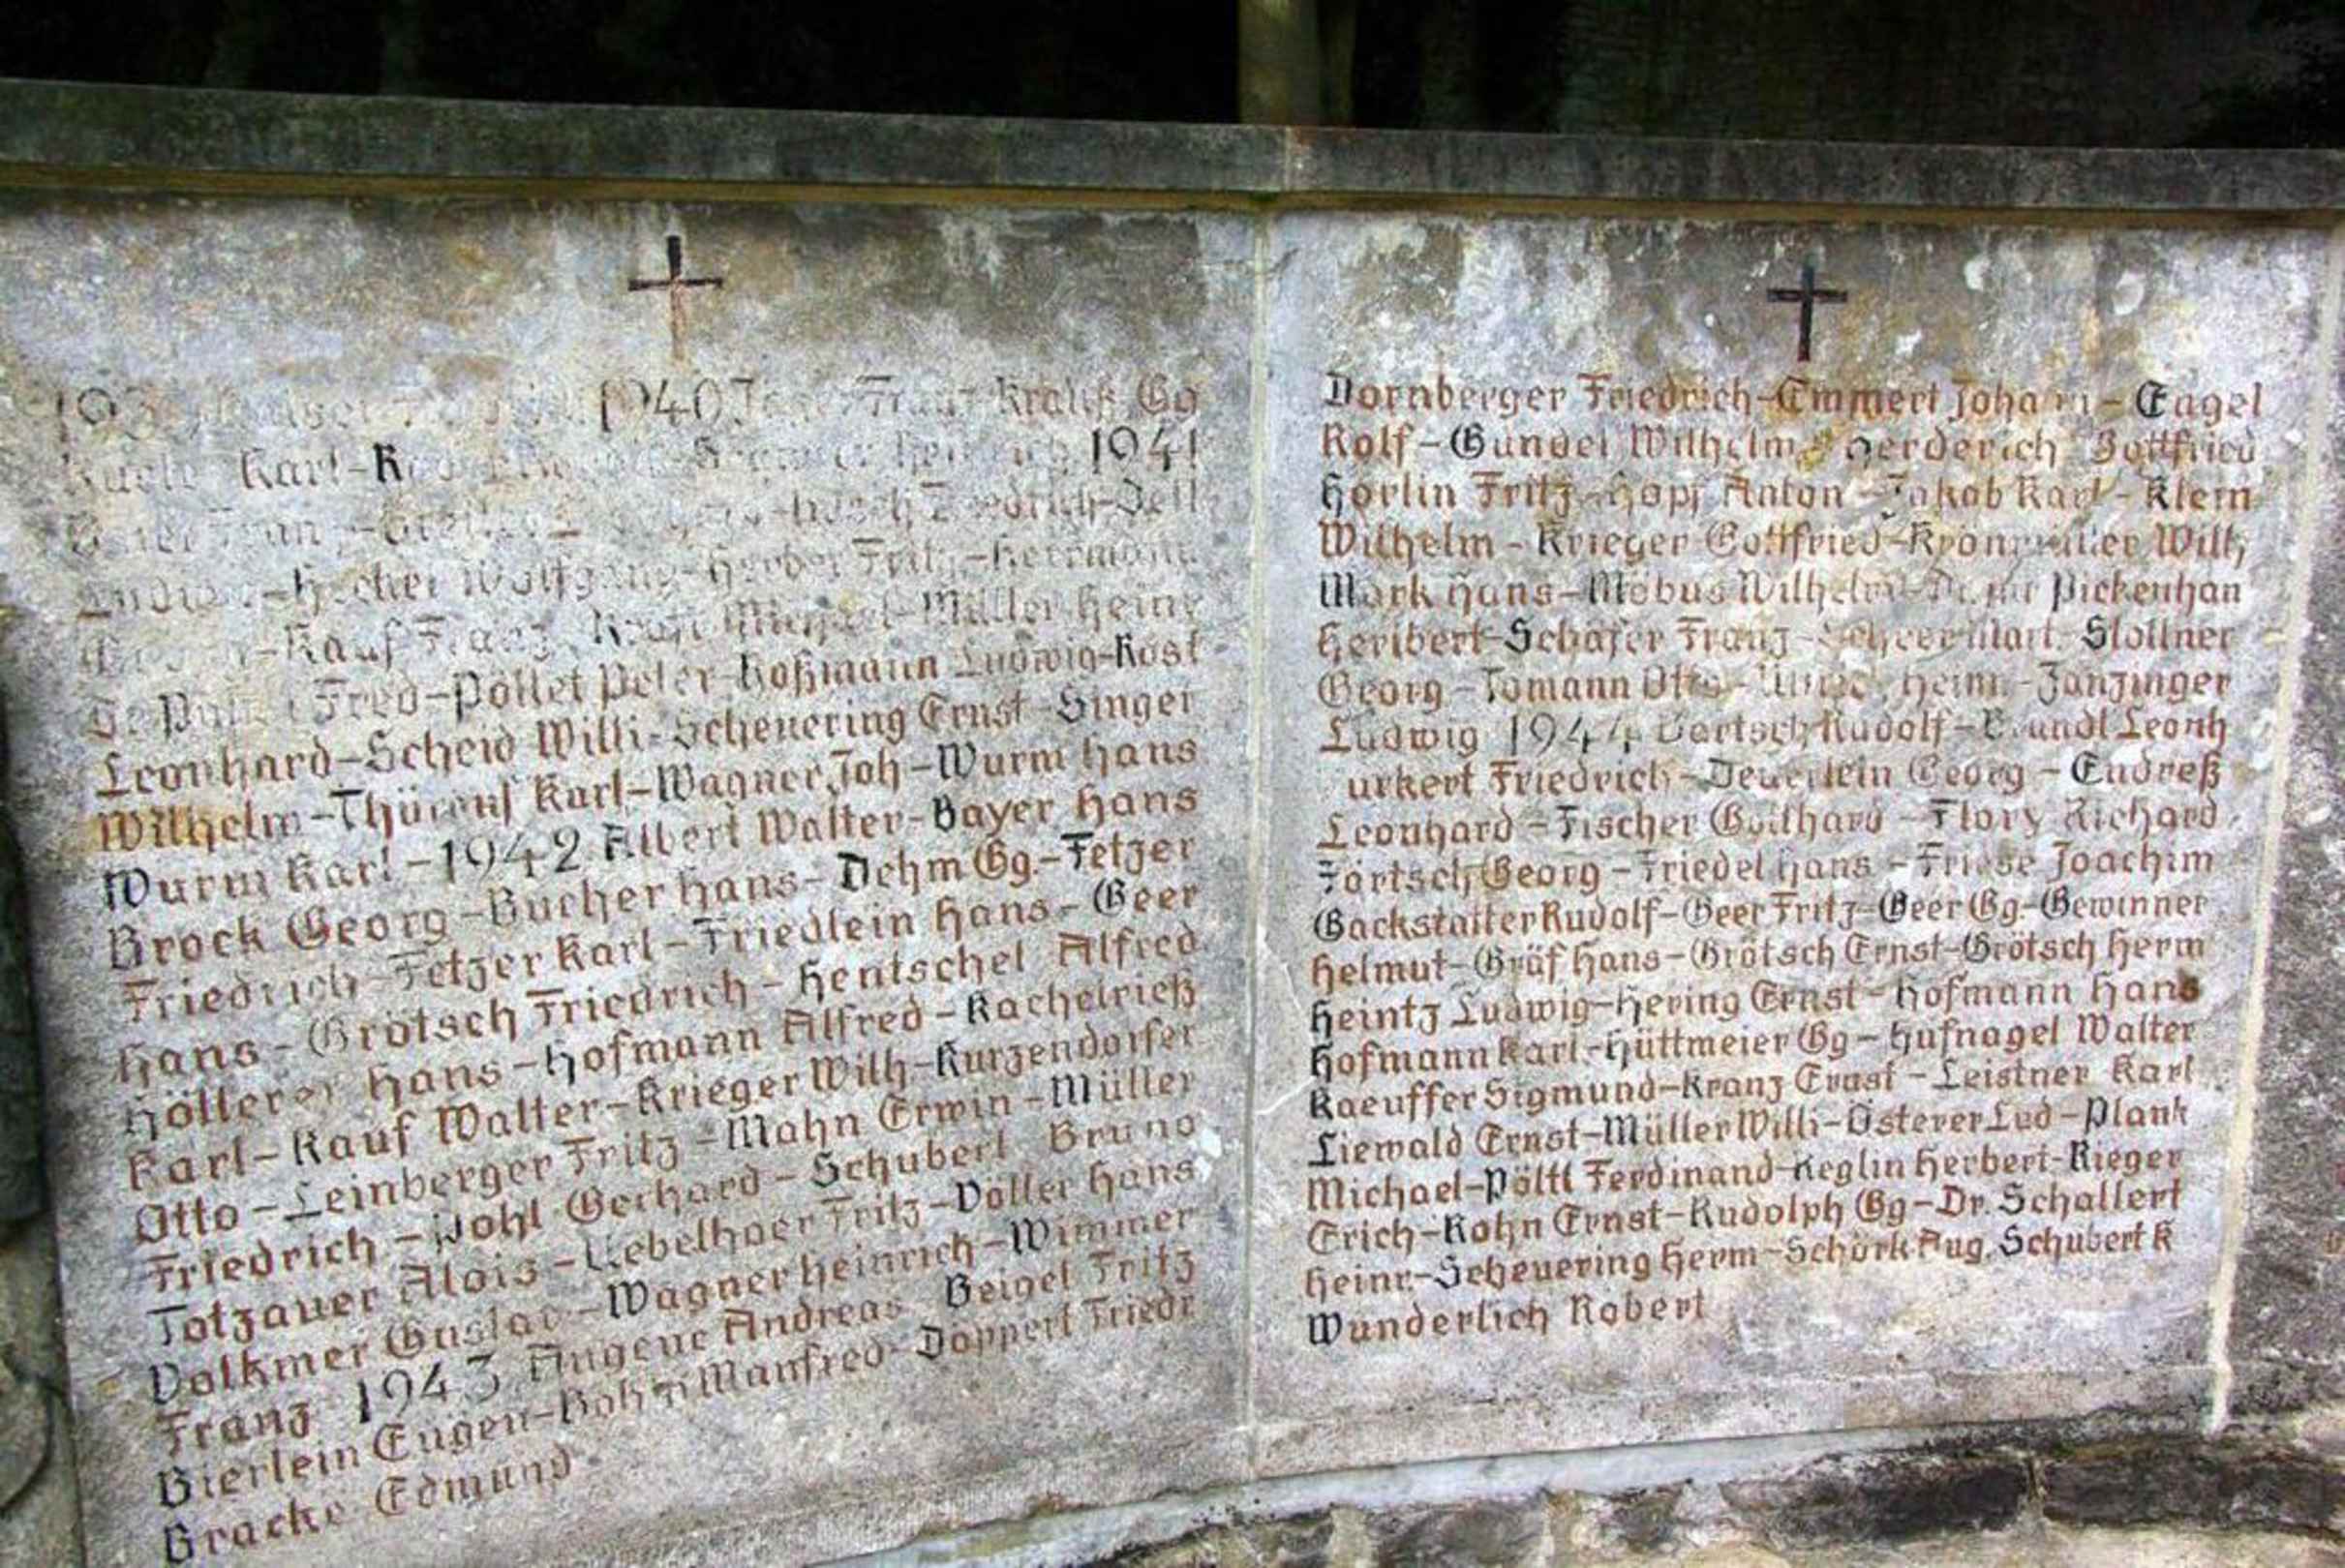 1940 Franz Kralik Gg
Karl- 1941
Friedrich-Dell
Wolfgang- Fritz-Herrmann
Kauf Franz Müller Heinr
Fred-Pöllet Peter-Roßmann Ludwig-Rost
Leonhard-Scheid Willi-Scheuering Ernst-Singer
Wilhelm-Thürauf Karl-Wagner Joh-Wurm Hans
Wurm Karl-1942 Albert Walter-Bayer Hans
Brock Georg-Bucher Hans-Dehm Gg.-Fetzer
Friedrich-Fetzer Karl-Friedlein Hans-Geer
Hans-Grötsch Friedrich-Hentschel Alfred
Höllerer Hans-Hofmann Alfred-Kachelrieß
Karl-Kauf Walter-Krieger Wilh-Kurzendorfer
Otto-Leinberger Fritz-Mahn Erwin-Müller
Friedrich-Pohl Gerhard-Schubert Bruno
Totzauer Alois-Uebelhoer Fritz-Voller Hans
Volkmer Gustav-Wagner Heinrich-Wimmer
Franz 1943 Andreas Beigel Fritz
Bierlein Eugen-Bohm Manfred-Döppert Friedr
Bracke Edmund
Dornberger Friedrich-Emmert Johann-Engel
Rolf-Gundel Wilhelm-Herderich Gottfried
Hörlin Fritz-Hopf Anton-Jakob Karl-Klein
Wilhelm-Krieger Gottfried-Kronmüller Wilh
Mark Hans-Möbus Wilhelm- Pickenhan
Heribert-Schäfer Franz-Scheer Mart. Stollner
Georg-Tomann Otto- Heinr.-Zanzinger
Ludwig 1944 Bartsch Rudolf-Brandl Leonh
Friedrich-Deuerlein Georg-Endreß
Leonhard-Fischer Gotthard-Flory Richard
Förtsch Georg-Friedel Hans-Friese Joachim
Gackstatter Rudolf-Geer Fritz-Geer Gg.-Gewinner
Helmut-Gräf Hans-Grötsch Ernst-Grötsch Herm
Heintz Ludwig-Hering Ernst-Hofmann Hans
Hofmann Karl-Hüttmeier Gg-Hufnagel Walter
Kaeuffer Sigmund-Kranz Ernst-Leistner Karl
Liewald Ernst-Müller Willi-Osterer Lud-Plank
Michael-Pöltl Ferdinand-Reglin Herbert-Rieger
Erich-Rohn Ernst-Rudolph Gg-Dr. Schallert
Heinr.-Scheuering Herm-Schork Aug. Schubert K
Wunderlich Robert